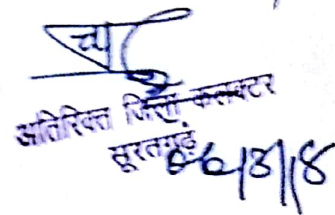 अतिरिक्त जिला कलक्टर
सूरतगढ़
06/8/18